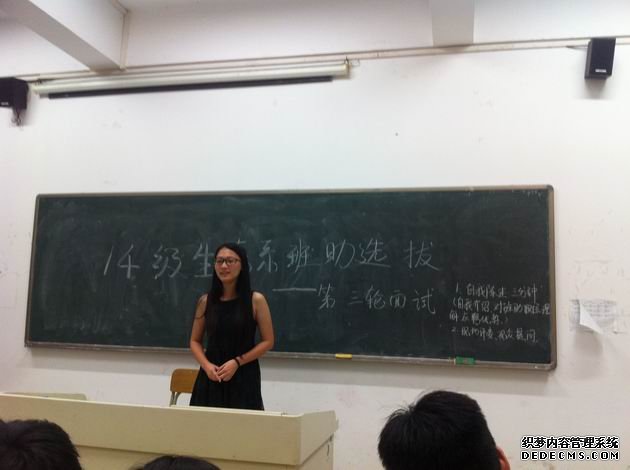 14级生 系班助选拔
——第三轮面试
1. 自我陈述三分钟
(自我介绍、对班助职位理
解及优势.
2.
织梦内容管理系统
DEDECMS.COM